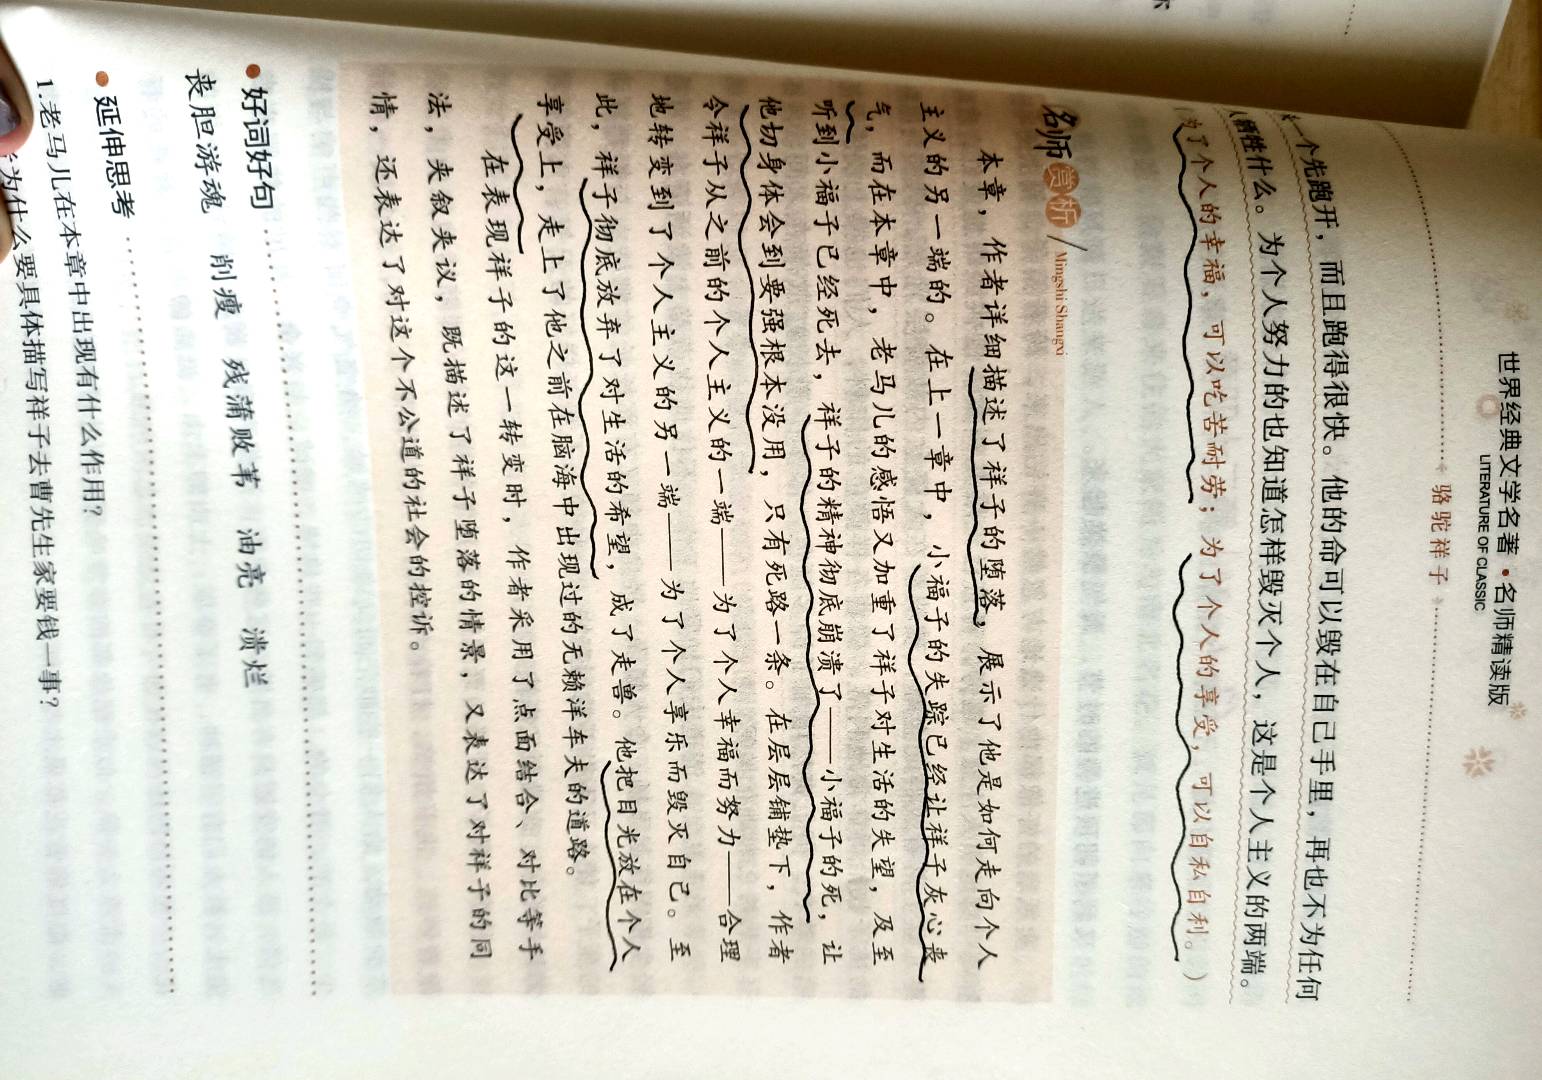 世界经典文学名著·名师精读版
LITERATURE OF CLASSIC
骆驼祥子
一个先跑开，而且跑得很快。他的命可以毁在自己手里，再也不为任何
人牺牲什么。为个人努力的也知道怎样毁灭个人，这是个人主义的两端。
（为了个人的幸福，可以吃苦耐劳；为了个人的享受，可以自私自利。）
名师赏析/Mingshi Shangxi
本章，作者详细描述了祥子的堕落，展示了他是如何走向个人
主义的另一端的。在上一章中，小福子的失踪已经让祥子灰心丧
气，而在本章中，老马儿的感悟又加重了祥子对生活的失望，及至
听到小福子已经死去，祥子的精神彻底崩溃了——小福子的死，让
他切身体会到要强根本没用，只有死路一条。在层层铺垫下，作者
令祥子从之前的个人主义的一端——为了个人幸福而努力——合理
地转变到了个人主义的另一端——为了个人享乐而毁灭自己。至
此，祥子彻底放弃了对生活的希望，成了走兽。他把目光放在个人
享受上，走上了他之前在脑海中出现过的无赖洋车夫的道路。
在表现祥子的这一转变时，作者采用了点面结合、对比等手
法，夹叙夹议，既描述了祥子堕落的情景，又表达了对祥子的同
情，还表达了对这个不公道的社会的控诉。
好词好句
丧胆游魂 削瘦 残蒲败苇 油亮 溃烂
延伸思考
1.老马儿在本章中出现有什么作用?
为什么要具体描写祥子去曹先生家要钱一事?